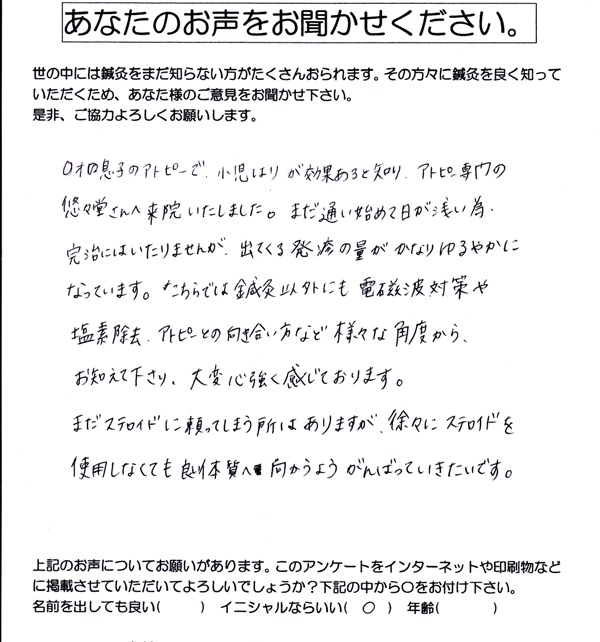 あなたのお声をお聞かせください。
世の中には鍼灸をまだ知らない方がたくさんおられます。その方々に鍼灸を良く知って
いただくため、あなた様のご意見をお聞かせ下さい。
是非、ご協力よろしくお願いします。
0才の息子のアトピーで、小児はりが効果あると知り、アトピー専門の
悠々堂さんへ来院いたしました。まだ通い始めて日が浅い為、
完治にはいたりませんが、出てくる発疹の量がかなりゆるやかに
なっています。こちらでは鍼灸以外にも電磁波対策や
塩素除去、アトピーとの向き合い方など様々な角度から、
お知えて下さり、大変心強く感じております。
まだステロイドに頼ってしまう所はありますが、徐々にステロイドを
使用しなくても良い体質へ向かうようがんばっていきたいです。
上記のお声についてお願いがあります。このアンケートをインターネットや印刷物など
に掲載させていただいてよろしいでしょうか?下記の中から〇をお付け下さい。
名前を出しても良い(　　　) イニシャルならいい( 〇 ) 年齢(　　　)